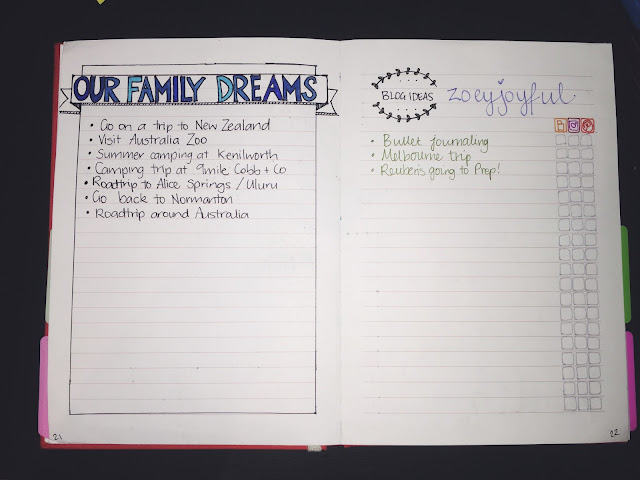 OUR FAMILY DREAMS
• Go on a trip to New Zealand
• Visit Australia Zoo
• Summer camping at Kenilworth
• Camping trip at 9mile Cobb + Co
• Roadtrip to Alice Springs / Uluru
• Go back to Normanton
• Roadtrip around Australia
21
BLOG IDEAS
zoeyjoyful
• Bullet journaling
• Melbourne trip
• Reuben's going to Prep!
22